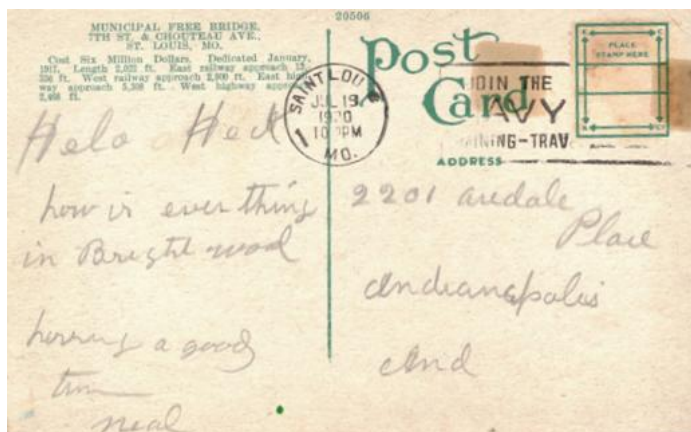 MUNICIPAL FREE BRIDGE,
7TH ST. & CHOUTEAU AVE.,
ST. LOUIS, MO.
Cost Six Million Dollars. Dedicated January,
1917. Length 2,022 ft. East railway approach
ft. West railway approach 2,800 ft. East high-
way approach 5,308 ft. West highway approach
ft.
20506
Post
Card
PLACE
STAMP HERE
SAINT LOU
JUL 19
1920
10 PM
MO.
JOIN THE
AVY
AINING-TRAV
ADDRESS
Helo Hect
how is ever thing
in Bright wood
having a good
time
Neal
2201 avedale
Place
Indianapolis
Ind